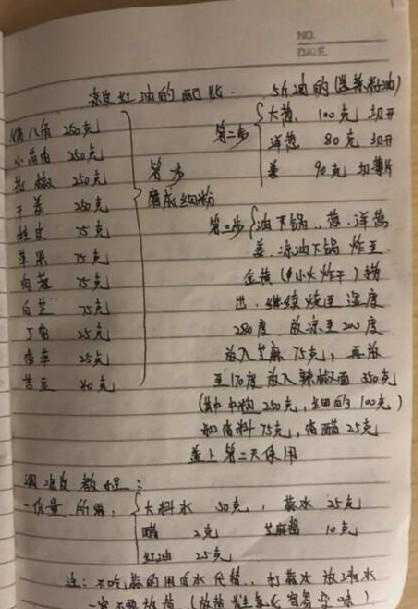 NO.
DATE.
凉皮红油的配比. 5斤油的(选菜籽油)
八角 250克
小茴香 250克
花椒 250克
干姜 250克
桂皮 75克
草果 75克
肉蔻 75克
白芝 75克
丁香 25克
25克
40克
第一步
磨成细粉
第二步
大葱, 100克 切开
洋葱 80克 切开
姜 90克 切薄片
第三步 油下锅, 葱、洋葱
姜 凉油下锅 炸至
金黄 (中小火炸干) 捞
出, 继续烧至温度
280度 放凉至200度
放入芝麻75克, 再放
至170度 放入辣椒面 350克
(中粗 250克, 细的 100克)
香料75克, 香醋25克
盖上第二天使用
调凉皮教程:
一份量 所用,
大料水 30克, 蒜水 25克
醋 2克 芝麻酱 10克
红油 25克
注: 不吃蒜的用 水代替, 打蒜水 放凉水